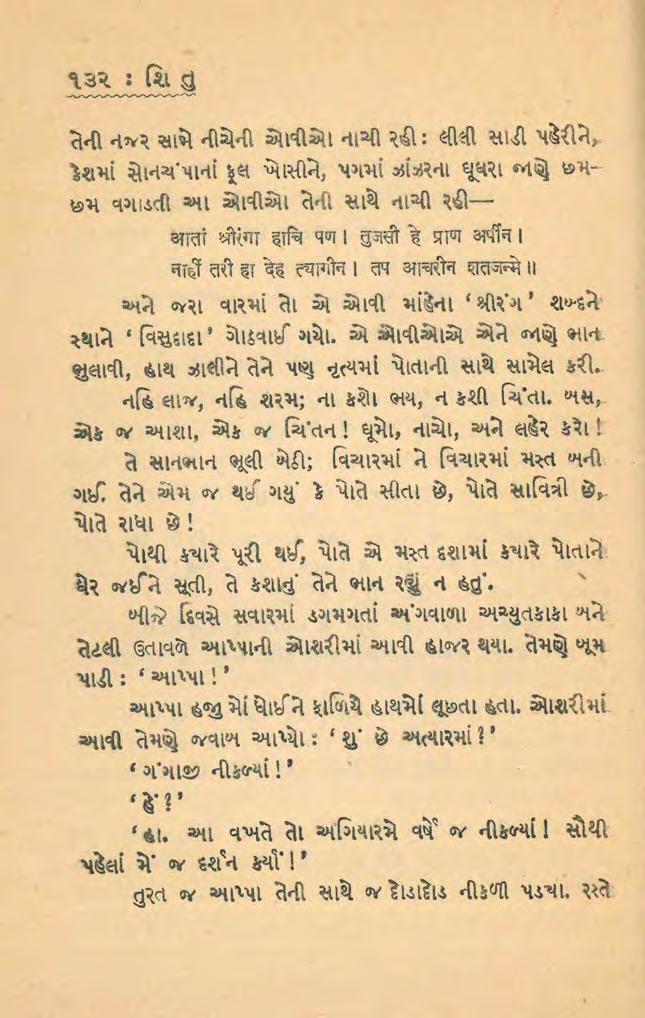 ૧૩૨ : શિ તુ
તેની નજર સામે નીચેની ઓવીઓ નાચી રહી: લીલી સાડી પહેરીને,
કેશમાં સોનચંપાનાં ફૂલ ખોસીને, પગમાં ઝાંઝરના ઘૂઘરા જાણે છમ-
છમ વગાડતી આ ઓવીઓ તેની સાથે નાચી રહી—
आतां श्रीरंगा हाचि पण। तुजसी हे प्राण अर्पीन।
नाहीं तरी हा देह त्यागीन। तप आचरीन शतजन्मे॥
અને જરા વારમાં તો એ ઓવી માંહેના ‘શ્રીરંગ’ શબ્દને
સ્થાને ‘વિસુદાદા’ ગોઠવાઈ ગયો. એ ઓવીઓએ એને જાણે ભાન
ભુલાવી, હાથ ઝાલીને તેને પણ નૃત્યમાં પોતાની સાથે સામેલ કરી.
નહિ લાજ, નહિ શરમ; ના કશો ભય, ન કશી ચિંતા. બસ,
એક જ આશા, એક જ ચિંતન! ઘૂમો, નાચો, અને લહેર કરો!
તે સાનભાન ભૂલી બેઠી; વિચારમાં ને વિચારમાં મસ્ત બની
ગઈ. તેને એમ જ થઈ ગયું કે પોતે સીતા છે, પોતે સાવિત્રી છે,
પોતે રાધા છે!
પોથી કયારે પૂરી થઈ, પોતે એ મસ્ત દશામાં કયારે પોતાને
ઘેર જઈને સૂતી, તે કશાનું તેને ભાન રહ્યું ન હતું.
બીજે દિવસે સવારમાં ડગમગતાં અંગવાળા અચ્યુતકાકા બને
તેટલી ઉતાવળે આપ્પાની ઓશરીમાં આવી હાજર થયા. તેમણે બૂમ
પાડી: ‘આપ્પા!’
આપ્પા હજુ મોં ધોઈને ફાળિયે હાથમોં લૂછતા હતા. ઓશરીમાં
આવી તેમણે જવાબ આપ્યો: ‘શું છે અત્યારમાં?’
‘ગંગાજી નીકળ્યાં!’
‘હેં?’
‘હા. આ વખતે તો અગિયારમે વર્ષે જ નીકળ્યાં! સૌથી
પહેલાં મેં જ દર્શન કર્યાં!’
તુરત જ આપ્પા તેની સાથે જ દોડાદોડ નીકળી પડયા. રસ્તે